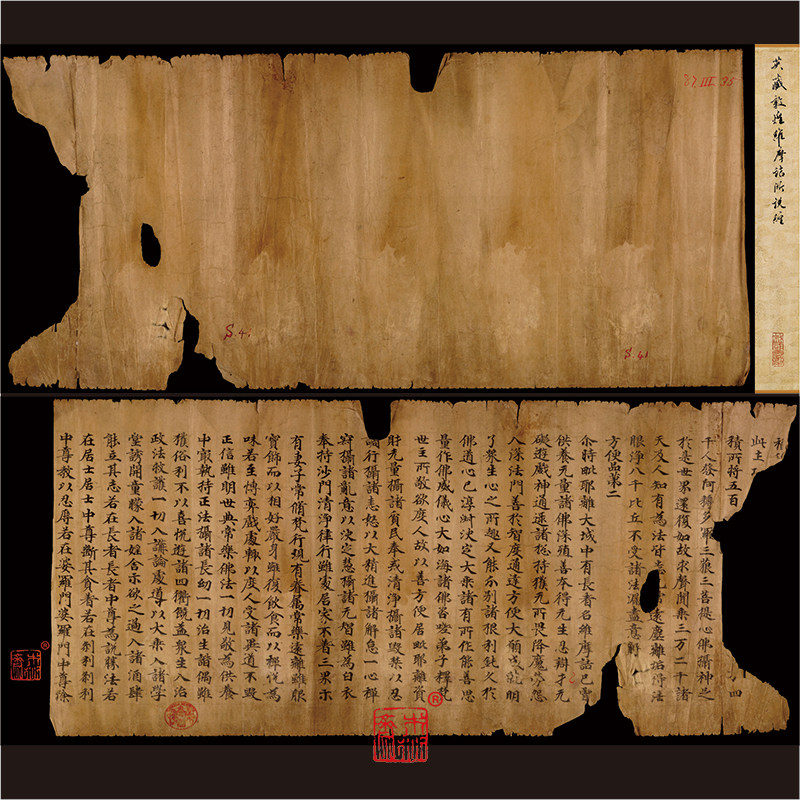 英藏敦煌維摩詰所說經
S.41
S.41
此土
積所將五百
千人發阿耨多羅三藐三菩提心佛攝神之
於是世界還復如故求聲聞乘三万二千諸
天及人知有為法皆悉 遠塵離垢得法
眼淨八千比丘不受諸法漏盡意解
方便品第二
尒時毗耶離大城中有長者名維摩詰已曾
供養无量諸佛深殖善本得无生忍辯才无
礙遊戲神通逮諸捴持獲无所畏降魔勞怨
入深法門善於智度通達方便大願成就明
了眾生心之所趣又能分別諸根利鈍久於
佛道心已淳淑決定大乘諸有所作能善思
量作佛威儀心大如海諸佛咨嗟弟子釋梵
世主所敬欲度人故以善方便居毗耶離資
財无量攝諸貧民奉戒清淨攝諸毀禁以忍
調行攝諸恚怒以大精進攝諸懈怠一心禪
寂攝諸亂意以決定慧攝諸无智雖為白衣
奉持沙門清淨律行雖處居家不著三界示
有妻子常脩梵行現有眷屬常樂遠離雖服
寶飾而以相好嚴身雖復飲食而以禪悅為
味若至博弈戲處輒以度人受諸異道不毀
正信雖明世典常樂佛法一切見敬為供養
中最執持正法攝諸長幼一切治生諧偶雖
獲俗利不以喜悅遊諸四衢饒益眾生入治
政法救護一切入講論處導以大乘入諸學
堂誘開童蒙入諸婬舍示欲之過入諸酒肆
能立其志若在長者長者中尊為說勝法若
在居士居士中尊斷其貪著若在剎利剎利
中尊教以忍辱若在婆羅門婆羅門中尊除